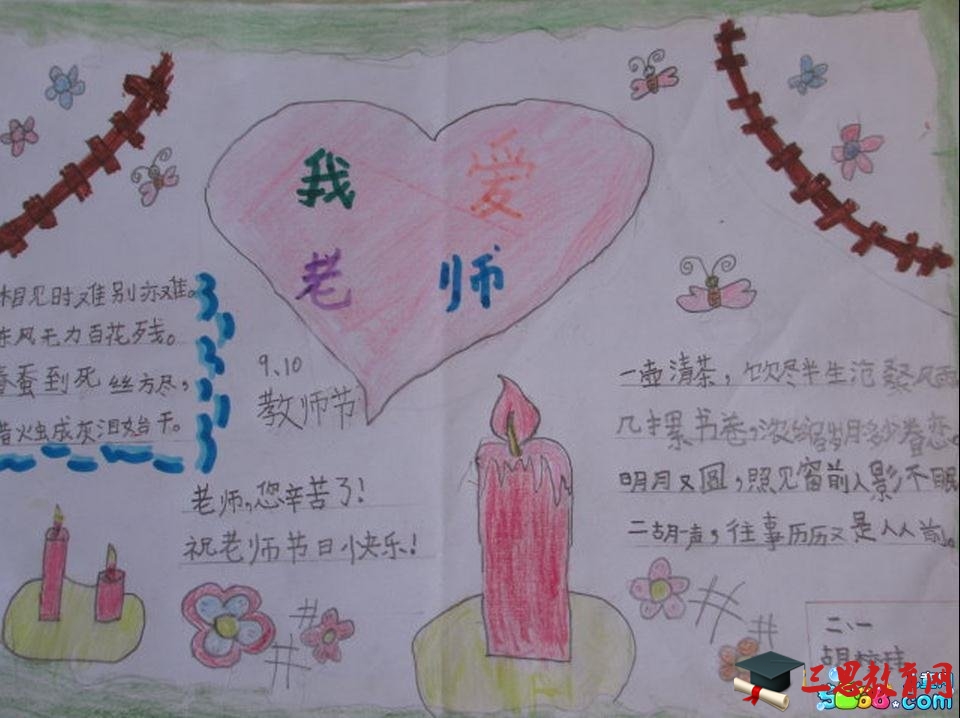 我 爱
老 师
相见时难别亦难。
东风无力百花残。
春蚕到死丝方尽,
蜡烛成灰泪始干。
9.10
教师节
老师,您辛苦了!
祝老师节日快乐!
一壶清茶,饮尽半生沧桑风雨
几摞书卷,浓缩岁月多少眷恋。
明月又圆,照见窗前人影不眠
二胡声,往事历历又是人人前。
二、一
三思教育网
.com